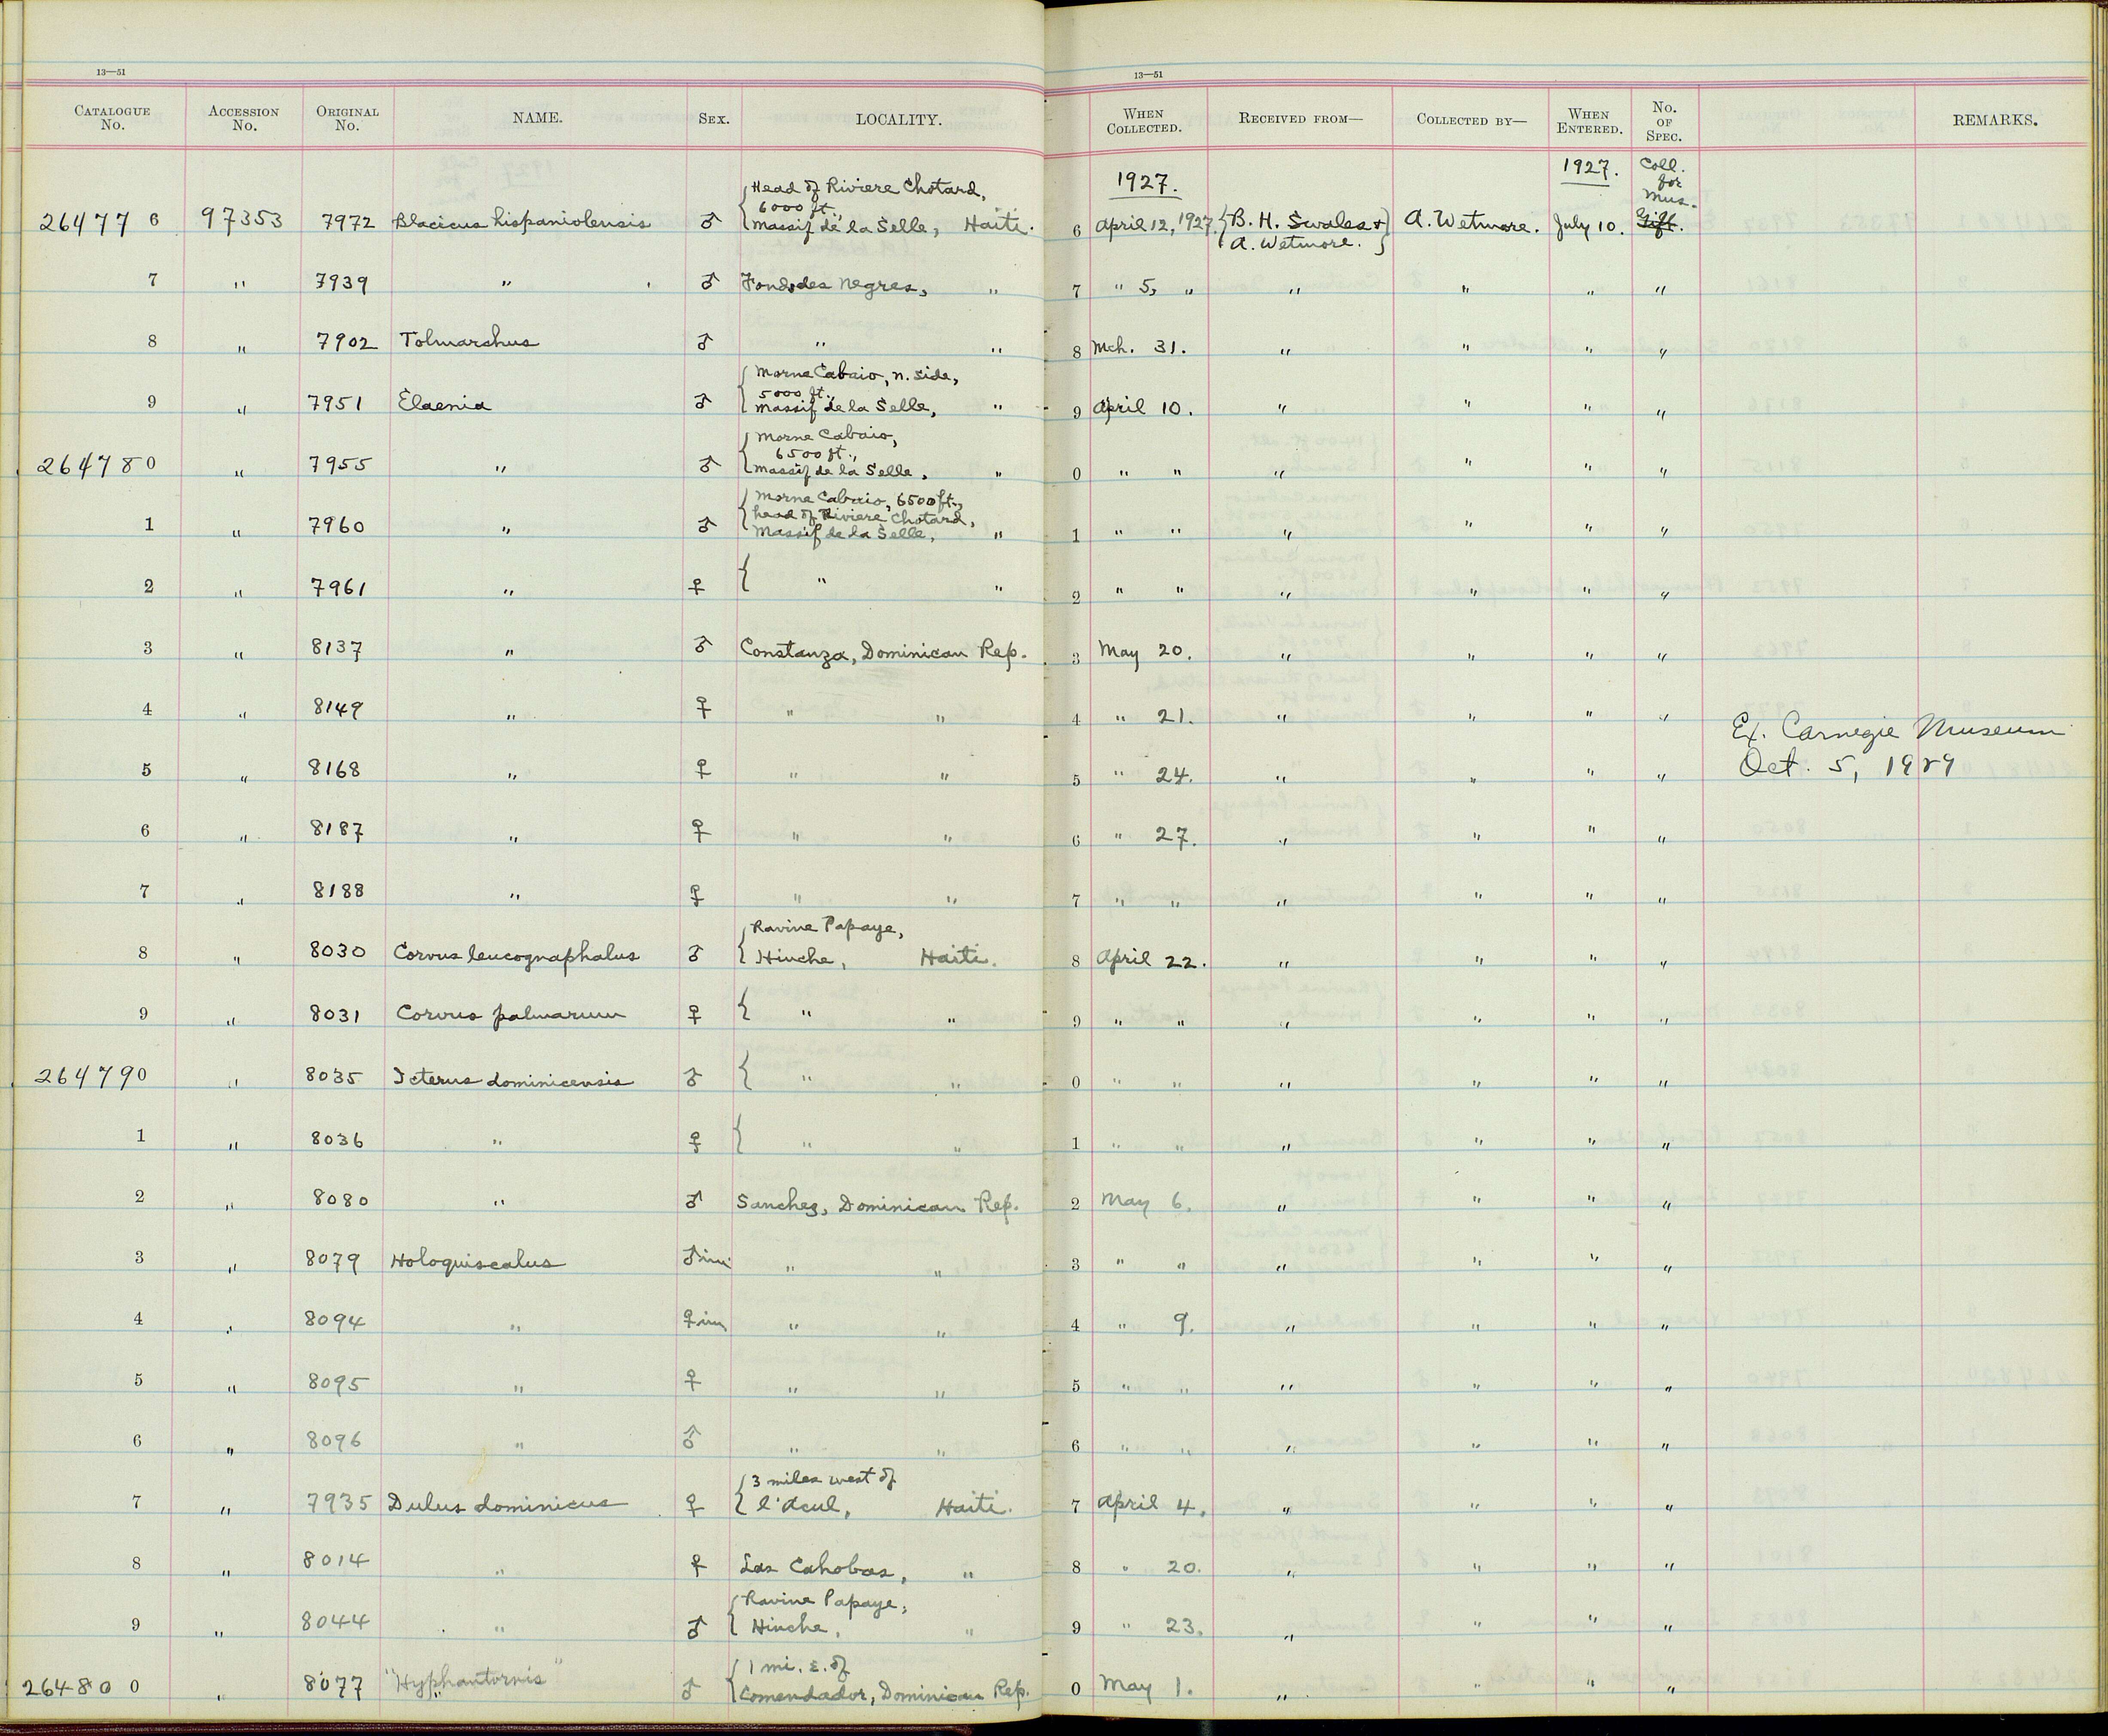 13—51
13—51
CATALOGUE No. ACCESSION No. ORIGINAL No. NAME. SEX. LOCALITY. WHEN COLLECTED. RECEIVED FROM— COLLECTED BY— WHEN ENTERED. No. OF SPEC. REMARKS.
1927. 1927. Coll. for Mus.
Head of Riviere Chotard,
6000 ft.,
264776 97353 7972 Blacicus hispaniolensis ♂ Massif de la Selle, Haiti. 6 April 12, 1927. B. H. Swales & A. Wetmore. A. Wetmore. July 10. Gift.
7 " 7939 " ♂ Fond des Negres, " 7 " 5, " " " " "
8 " 7902 Tolmarchus ♂ " " 8 Mch. 31. " " " "
Morne Cabaio, n. side,
5000 ft.,
9 " 7951 Elaenia ♂ Massif de la Selle, " 9 April 10. " " " "
Morne Cabaio,
6500 ft.,
264780 " 7955 " ♂ Massif de la Selle, " 0 " " " " " "
Morne Cabaio, 6500 ft.,
head of Riviere Chotard,
1 " 7960 " ♂ Massif de la Selle, " 1 " " " " " "
2 " 7961 " ♀ " " 2 " " " " " "
3 " 8137 " ♂ Constanza, Dominican Rep. 3 May 20. " " " "
4 " 8149 " ♀ " " 4 " 21. " " " " Ex. Carnegie Museum
5 " 8168 " ♀ " " 5 " 24. " " " " Oct. 5, 1929
6 " 8187 " ♀ " " 6 " 27. " " " "
7 " 8188 " ♀ " " 7 " " " " " "
Ravine Papaye,
8 " 8030 Corvus leucognaphalus ♂ Hinche, Haiti. 8 April 22. " " " "
9 " 8031 Corvus palmarum ♀ " " 9 " " " " " "
264790 " 8035 Icterus dominicensis ♂ " " 0 " " " " " "
1 " 8036 " ♀ " " 1 " " " " " "
2 " 8080 " ♂ Sanchez, Dominican Rep. 2 May 6. " " " "
3 " 8079 Holoquiscalus ♂im " " 3 " " " " " "
4 " 8094 " ♀im " " 4 " 9. " " " "
5 " 8095 " ♀ " " 5 " " " " " "
6 " 8096 " ♂ " " 6 " " " " " "
3 miles west of
7 " 7935 Dulus dominicus ♀ l'Acul, Haiti. 7 April 4. " " " "
8 " 8014 " ♀ Las Cahobas, " 8 " 20. " " " "
Ravine Papaye,
9 " 8044 " ♂ Hinche, " 9 " 23. " " " "
1 mi. E. of
264800 " 8077 "Hyphantornis" ♂ Comendador, Dominican Rep. 0 May 1. " " " "